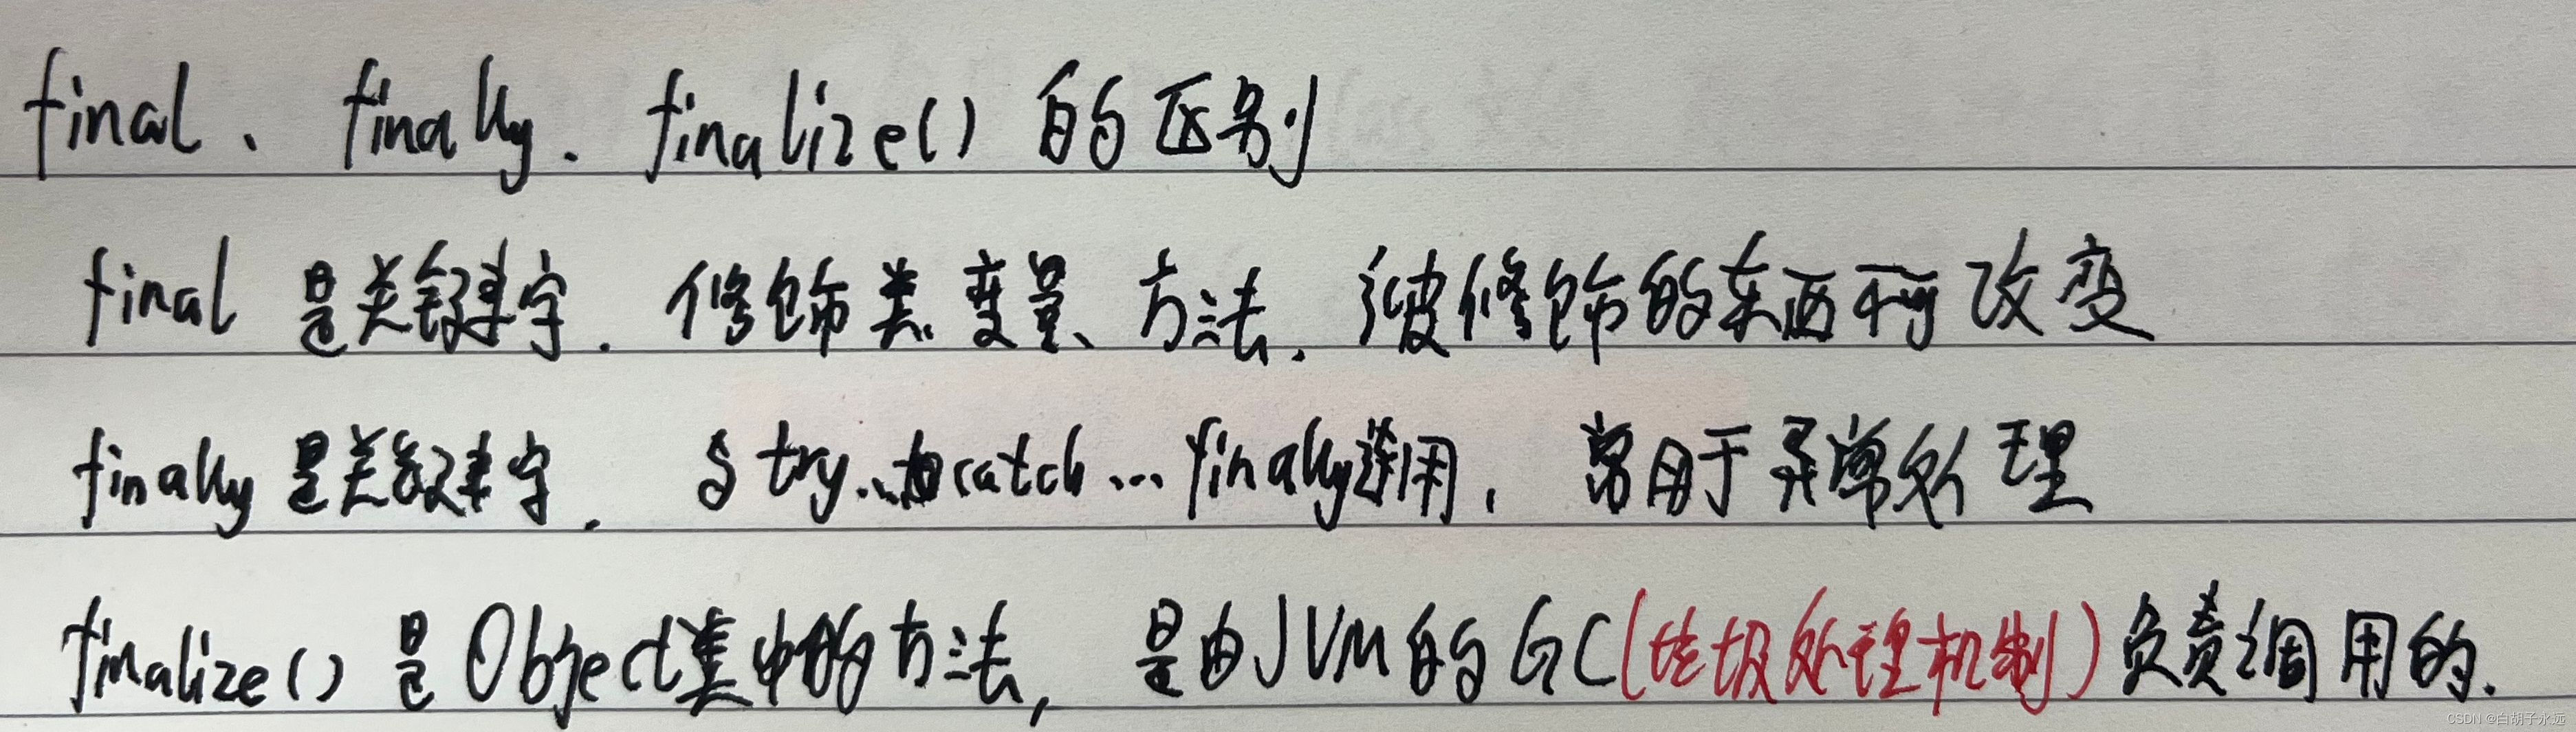 final、finally、finalize()的区别
final是关键字，修饰类、变量、方法，被修饰的东西不可改变
finally是关键字，与try...和catch...finally连用，常用于异常处理
finalize()是Object类中的方法，是由JVM的GC(垃圾处理机制)负责调用的.
CSDN @白胡子永远